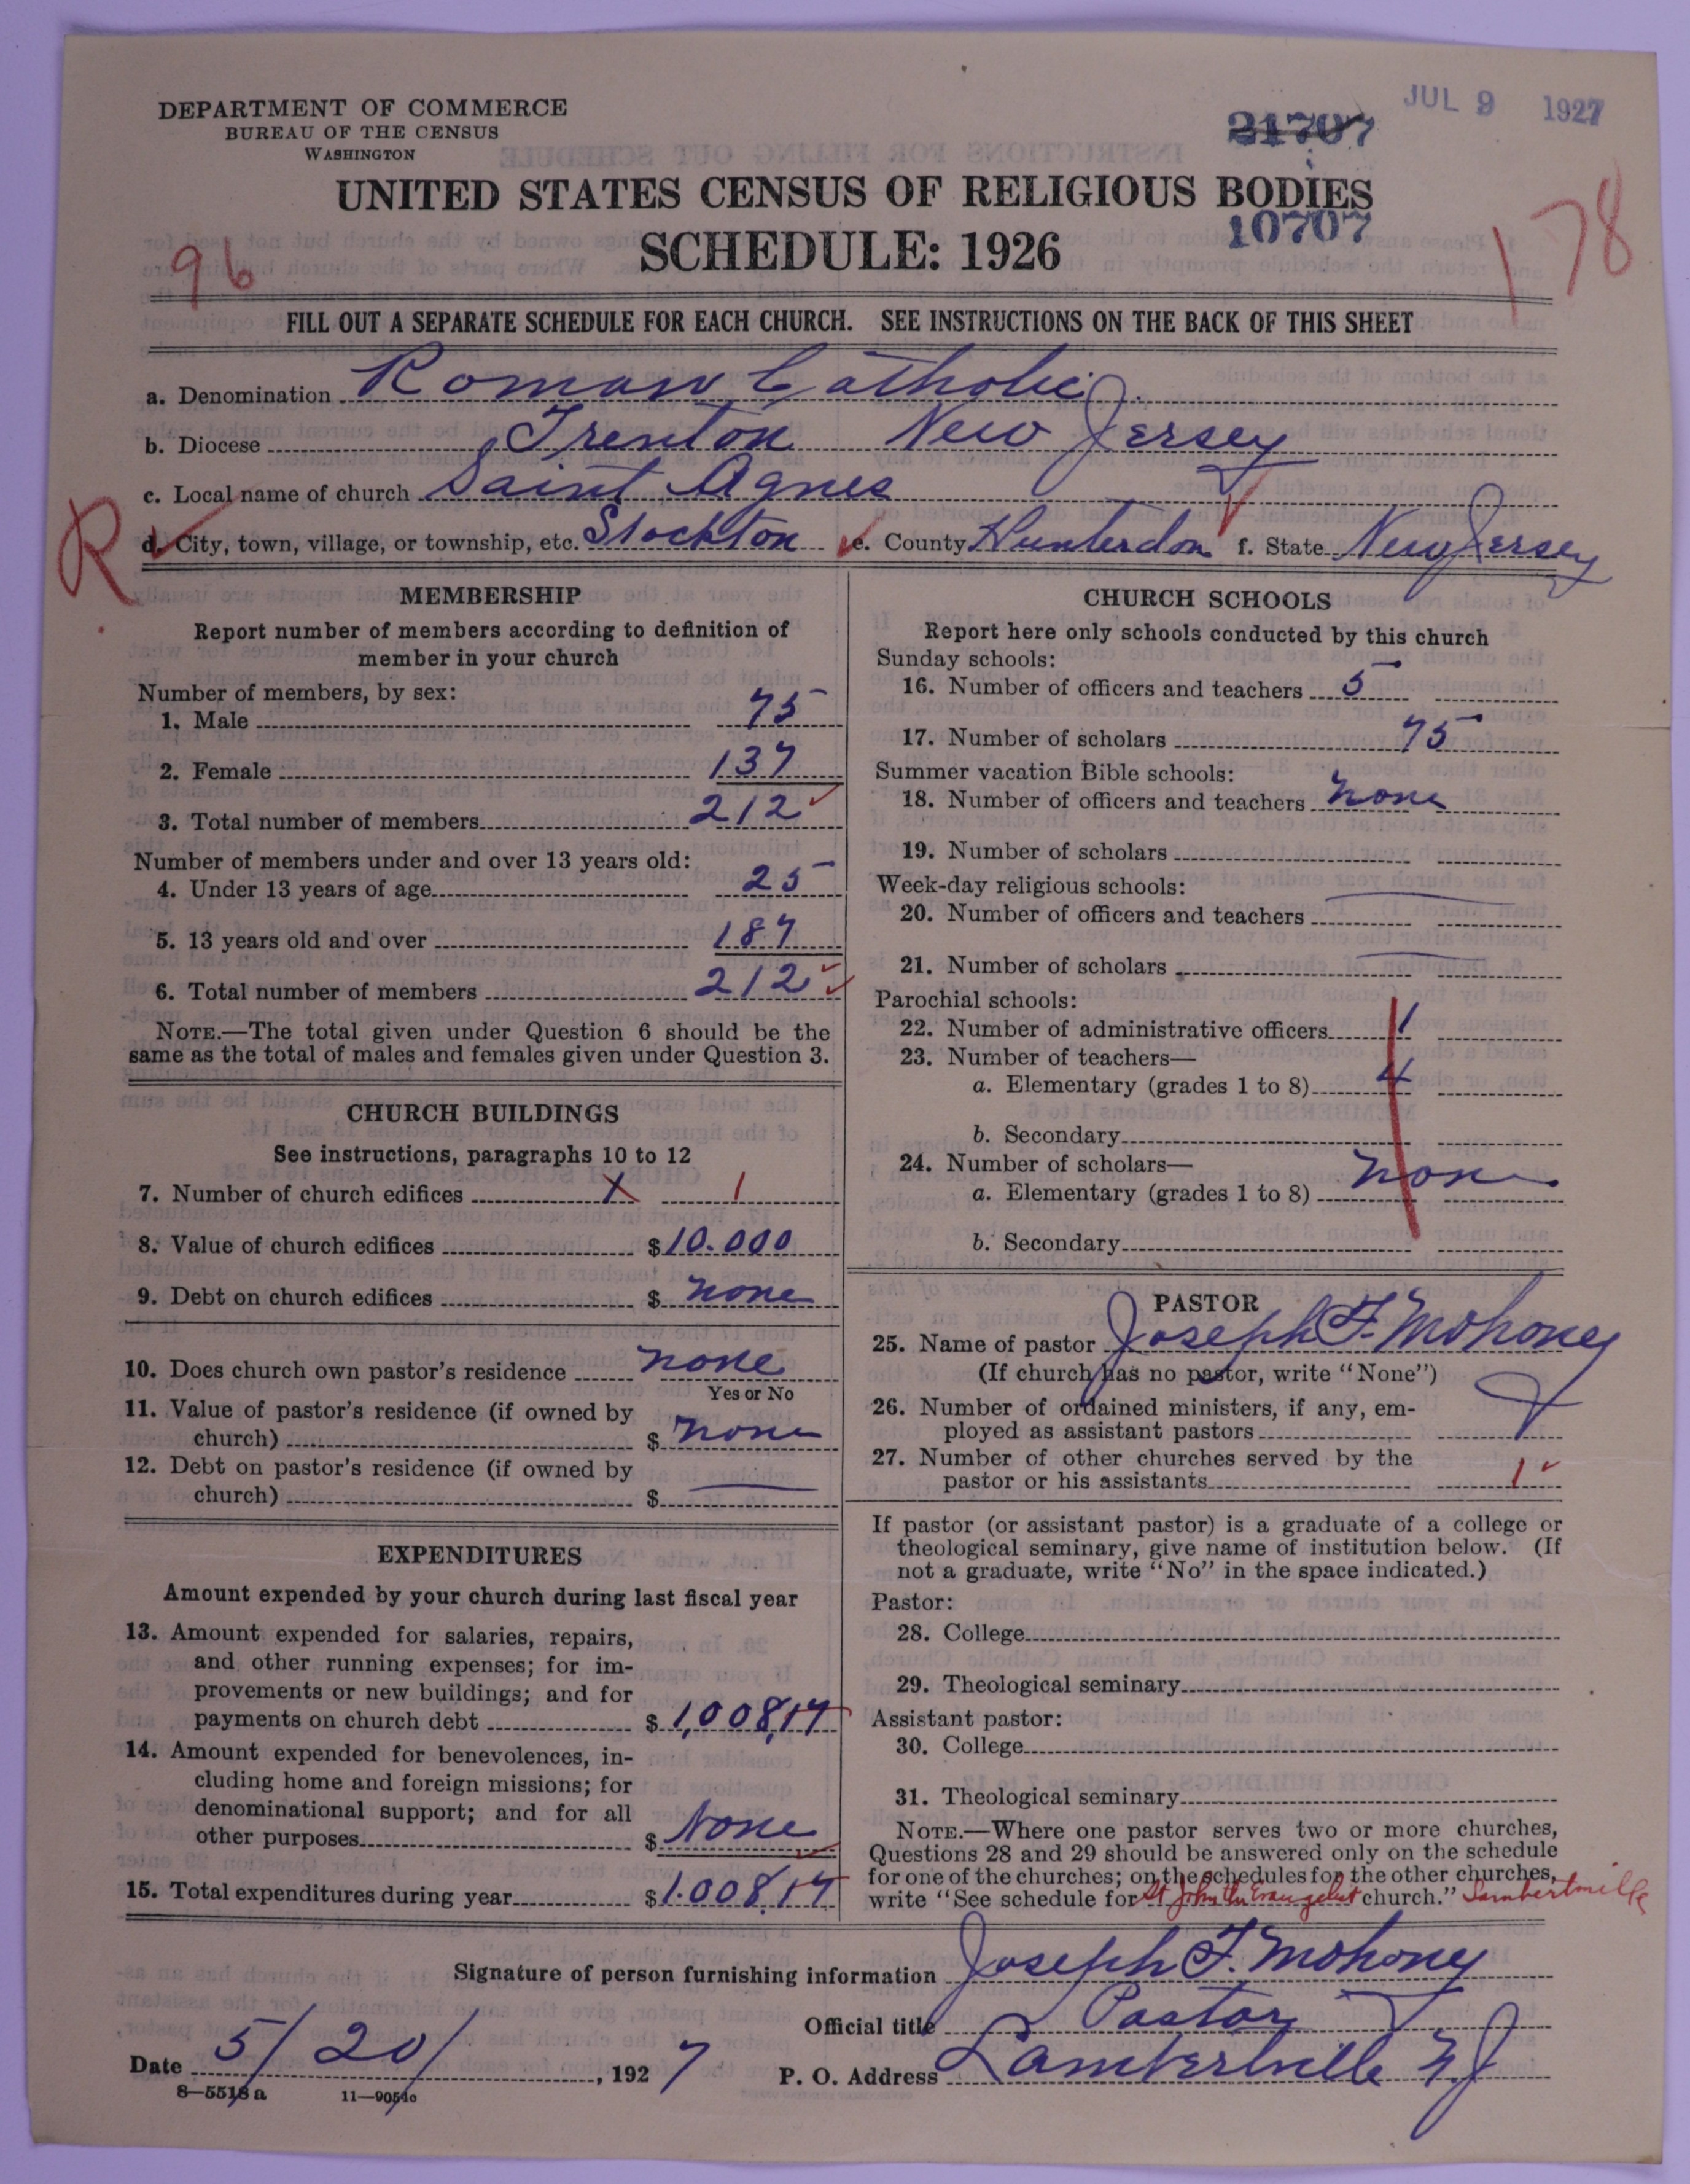 JUL 9 1927
DEPARTMENT OF COMMERCE
BUREAU OF THE CENSUS
WASHINGTON
21707
UNITED STATES CENSUS OF RELIGIOUS BODIES
10707
SCHEDULE: 1926
96
178
FILL OUT A SEPARATE SCHEDULE FOR EACH CHURCH. SEE INSTRUCTIONS ON THE BACK OF THIS SHEET
a. Denomination Roman Catholic
b. Diocese Trenton New Jersey
c. Local name of church Saint Agnes
R
d. City, town, village, or township, etc. Stockton e. County Hunterdon f. State New Jersey
MEMBERSHIP
Report number of members according to definition of
member in your church
Number of members, by sex:
1. Male 75
2. Female 137
3. Total number of members 212
Number of members under and over 13 years old:
4. Under 13 years of age 25
5. 13 years old and over 187
6. Total number of members 212
NOTE.—The total given under Question 6 should be the
same as the total of males and females given under Question 3.
CHURCH BUILDINGS
See instructions, paragraphs 10 to 12
7. Number of church edifices X 1
8. Value of church edifices $10.000
9. Debt on church edifices $ none
10. Does church own pastor's residence none
Yes or No
11. Value of pastor's residence (if owned by
church) $ none
12. Debt on pastor's residence (if owned by
church) $
EXPENDITURES
Amount expended by your church during last fiscal year
13. Amount expended for salaries, repairs,
and other running expenses; for im-
provements or new buildings; and for
payments on church debt $ 1,008,17
14. Amount expended for benevolences, in-
cluding home and foreign missions; for
denominational support; and for all
other purposes $ None
15. Total expenditures during year $1.008,17
CHURCH SCHOOLS
Report here only schools conducted by this church
Sunday schools:
16. Number of officers and teachers 5
17. Number of scholars 75
Summer vacation Bible schools:
18. Number of officers and teachers none
19. Number of scholars
Week-day religious schools:
20. Number of officers and teachers
21. Number of scholars
Parochial schools:
22. Number of administrative officers 1
23. Number of teachers—
a. Elementary (grades 1 to 8) 4
b. Secondary
24. Number of scholars—
a. Elementary (grades 1 to 8) non
b. Secondary
PASTOR
25. Name of pastor Joseph F. Mohoney
(If church has no pastor, write "None")
26. Number of ordained ministers, if any, em-
ployed as assistant pastors
27. Number of other churches served by the
pastor or his assistants 1
If pastor (or assistant pastor) is a graduate of a college or
theological seminary, give name of institution below. (If
not a graduate, write "No" in the space indicated.)
Pastor:
28. College
29. Theological seminary
Assistant pastor:
30. College
31. Theological seminary
NOTE.—Where one pastor serves two or more churches,
Questions 28 and 29 should be answered only on the schedule
for one of the churches; on the schedules for the other churches,
write "See schedule for St John the Evangelist church." Lambertville
Signature of person furnishing information Joseph F. Mohoney
Official title Pastor
Date 5/20/, 1927 P. O. Address Lambertville N.J
8—5513 a 11—9054c